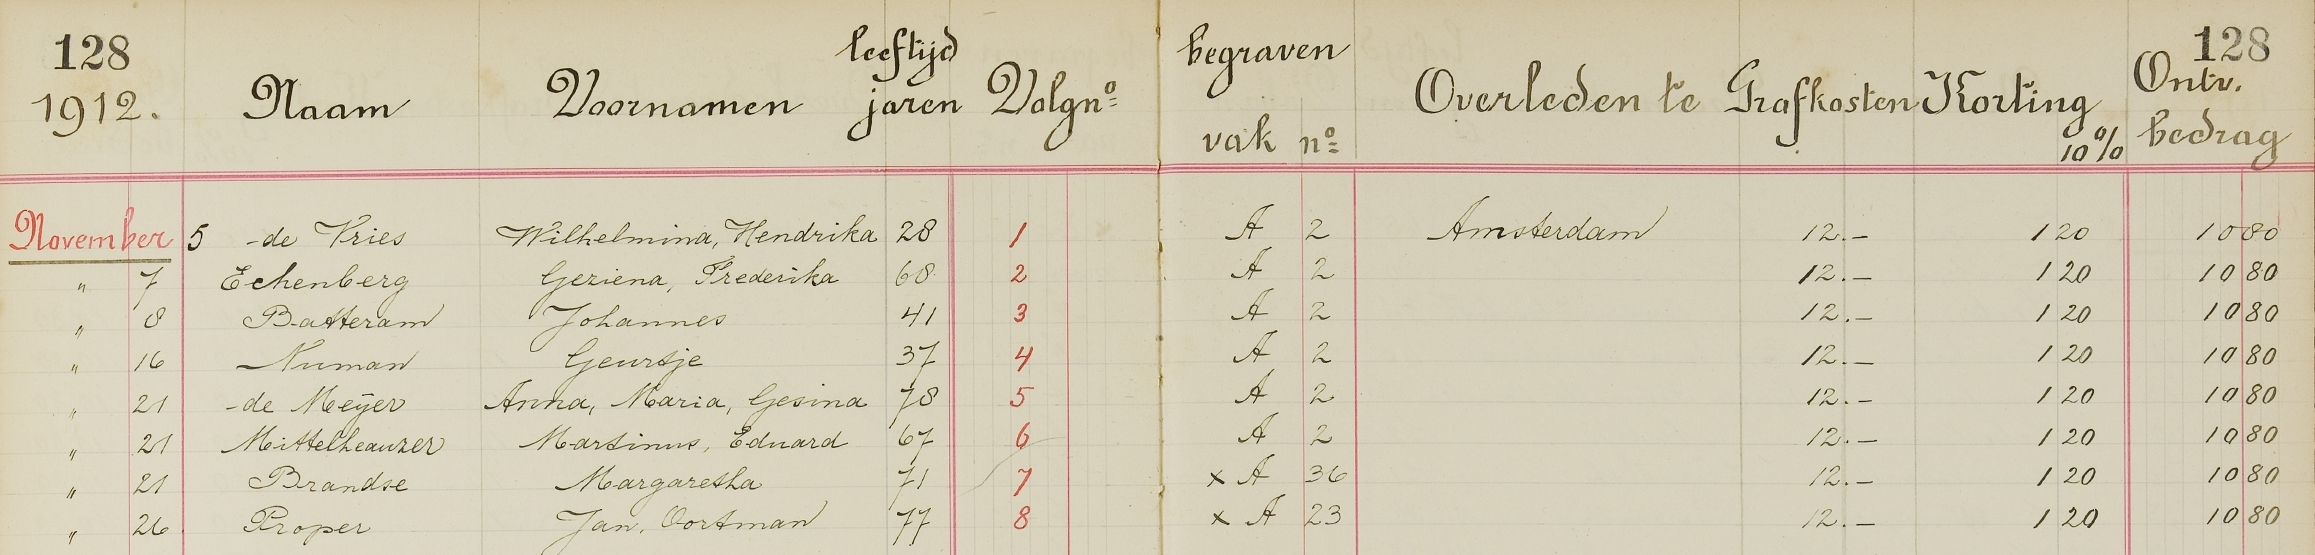 128 leeftijd begraven 128
1912. Naam Voornamen jaren Volgno Overleden te Grafkosten Korting Ontv.
vak no 10% bedrag
November 5 de Vries Wilhelmina, Hendrika 28 1 A 2 Amsterdam 12.— 1 20 10 80
" 7 Echenberg Geziena, Frederika 68 2 A 2 12.— 1 20 10 80
" 8 Batteram Johannes 41 3 A 2 12.— 1 20 10 80
" 16 Numan Geurtje 37 4 A 2 12.— 1 20 10 80
" 21 de Meÿer Anna, Maria, Gesina 78 5 A 2 12.— 1 20 10 80
" 21 Martinus, Eduard 67 6 A 2 12.— 1 20 10 80
" 21 Brandse Margaretha 71 7 x A 36 12.— 1 20 10 80
" 26 Proper Jan, Oortman 77 8 x A 23 12.— 1 20 10 80